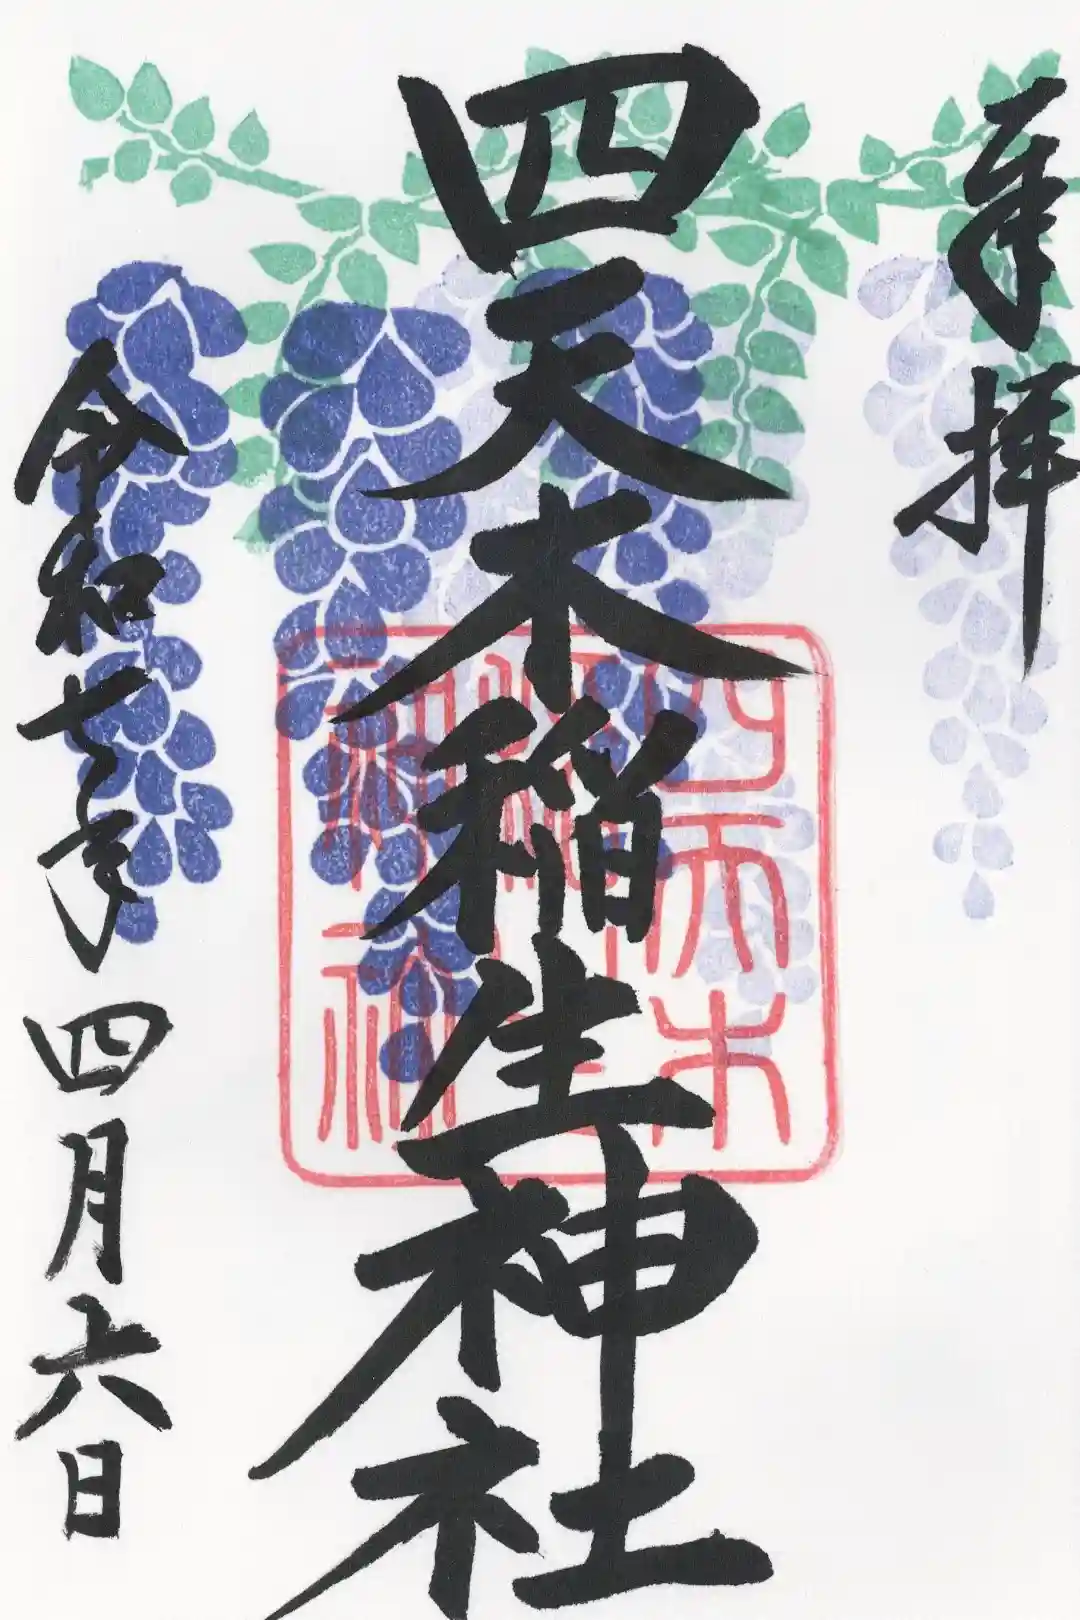 奉拝
四天木稲生神社
四天木
稲生
神社
令和七年四月六日